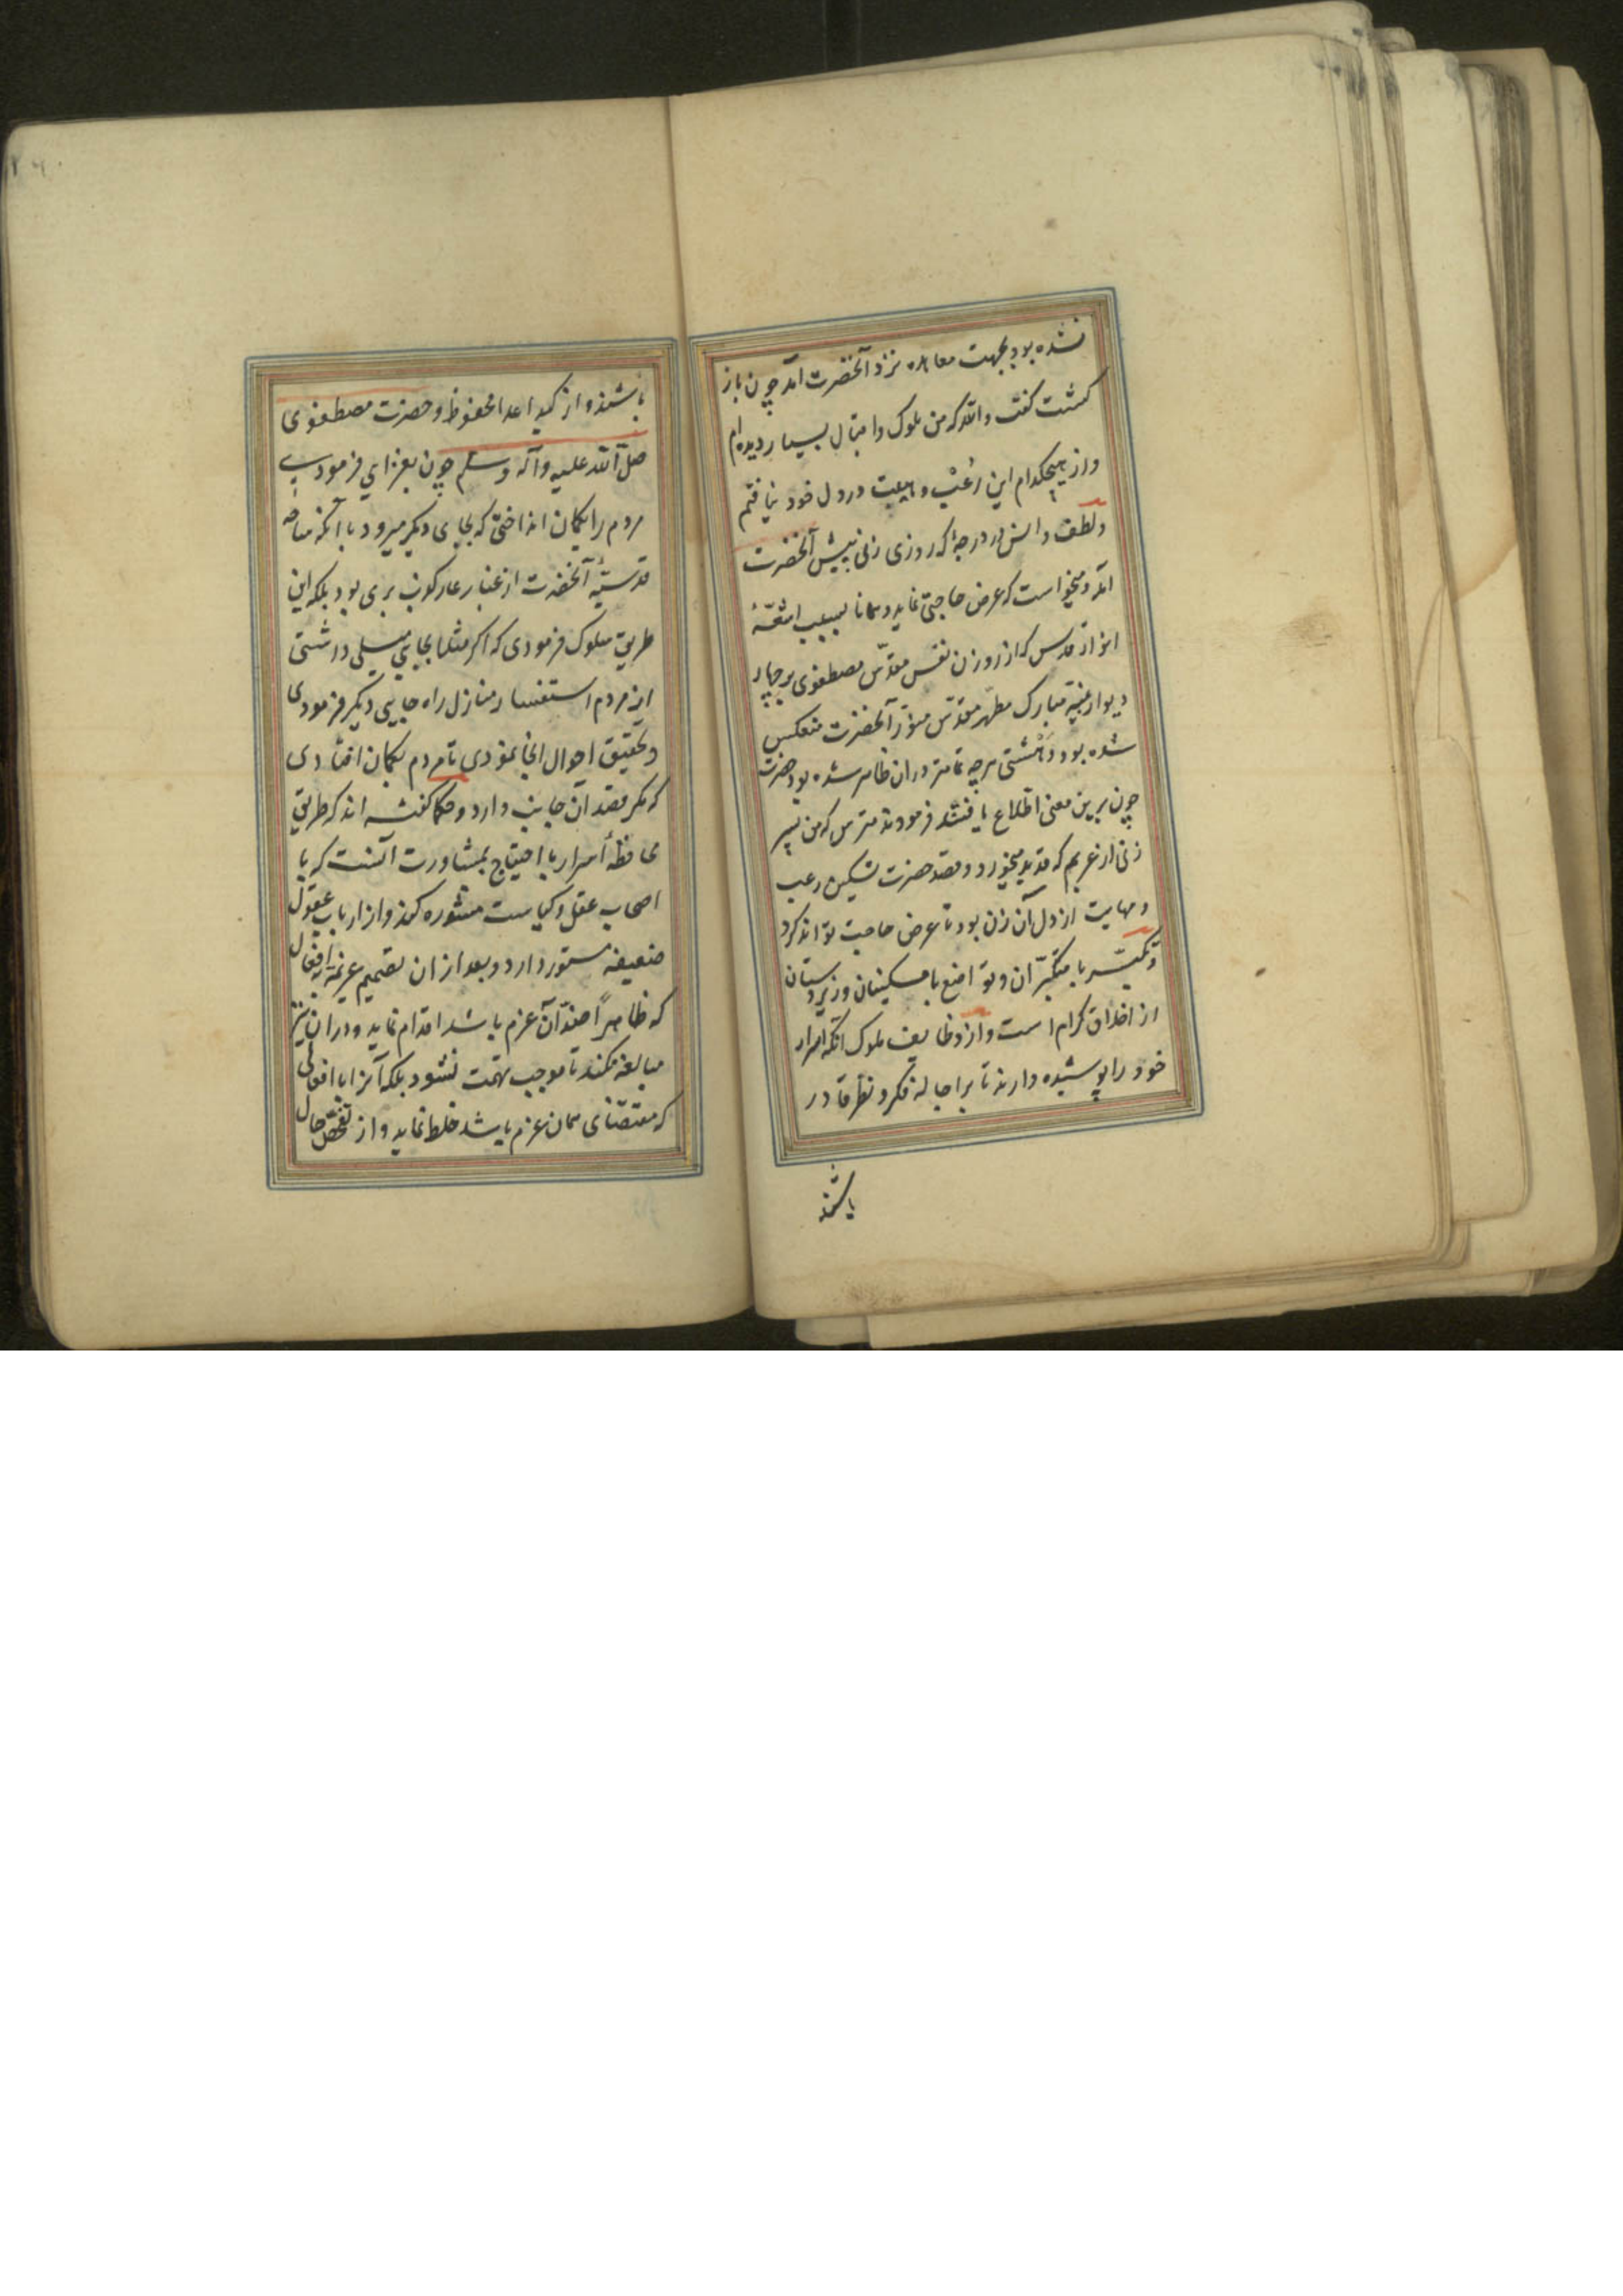 نشده بود بجهت معاهده نزد آنحضرت آمد چون باز
کشت کفت والله که من ملوک واقیال بسیار دیده ام
واز هیچکدام این رُعب و هیبت در دل خود نیافتم
ولطف دانش در درجهٔ که روزی زنی پیش آنحضرت
آمد ومیخواست که عرض حاجتی نماید وهمانا بسبب اشعّهٔ
انوار قدس که از روزن نفس مقدّس مصطفوی بر چهار
دیوار بنیهٔ مبارک مطهّر مقدّس منوّر آنحضرت منعکس
شده بود دهشتی هرچه تمامتر دران ظاهر شده بود حضرت
چون برین معنی اطّلاع یافتند فرمودند مترس که من پسر
زنی از عربم که قدید میخورد وقصد حضرت تسکین رعب
ومهابت از دل آن زن بود تا عرض حاجت تواند کرد
وتکبّر با متکبّران وتواضع با مسکینان وزیردستان
از اخلاق کرام است واز وظایف ملوک آنکه اسرار
خود را پوشیده دارند تا بر اجالهٔ فکر ونظر قادر
باشند
۱۶۰
باشند واز کید اعدا محفوظ وحضرت مصطفوی
صلّی الله علیه وآله وسلم چون بغزای فرمودی
مردم را بکمان انداختی که بجای دیکر میرود با آنکه ساحهٔ
قدسیّهٔ آنحضرت از غبار عار کذب بری بود بلکه این
طریق سلوک فرمودی که اکر مثلا بجایی میلی داشتی
از مردم استفسار منازل راه جایی دیکر فرمودی
وتحقیق احوال آنجا نمودی تا مردم بکمان افتادی
که مکر قصد آن جانب دارد وحکما کفته اند که طریق
محافظهٔ اسرار با احتیاج بمشاورت آنست که با
اصحاب عقل وکیاست مشوره کند واز ارباب عقول
ضعیفه مستور دارد وبعد از ان تصمیم عزیمة بافعال
که ظاهراً ضدّ آن عزم باشد اقدام نماید ودران نیز
مبالغه نکند تا موجب تهمت نشود بلکه آنرا با افعالی
که مقتضای همان عزم باشد خلط نماید واز تفحّص حال